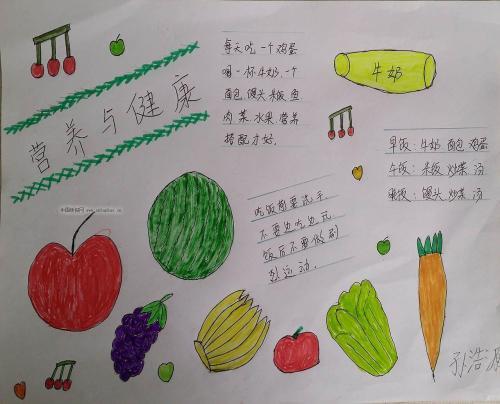 营养与健康
每天吃一个鸡蛋
喝一杯牛奶.一个
面包.馒头米饭.鱼
肉.菜.水果.营养
搭配才好.
牛奶
早饭:牛奶 面包.鸡蛋
午饭:米饭 炒菜.汤
晚饭:馒头.炒菜.汤
吃饭前要洗手.
不要边吃边玩
饭后不要做剧
烈运动.
孙浩